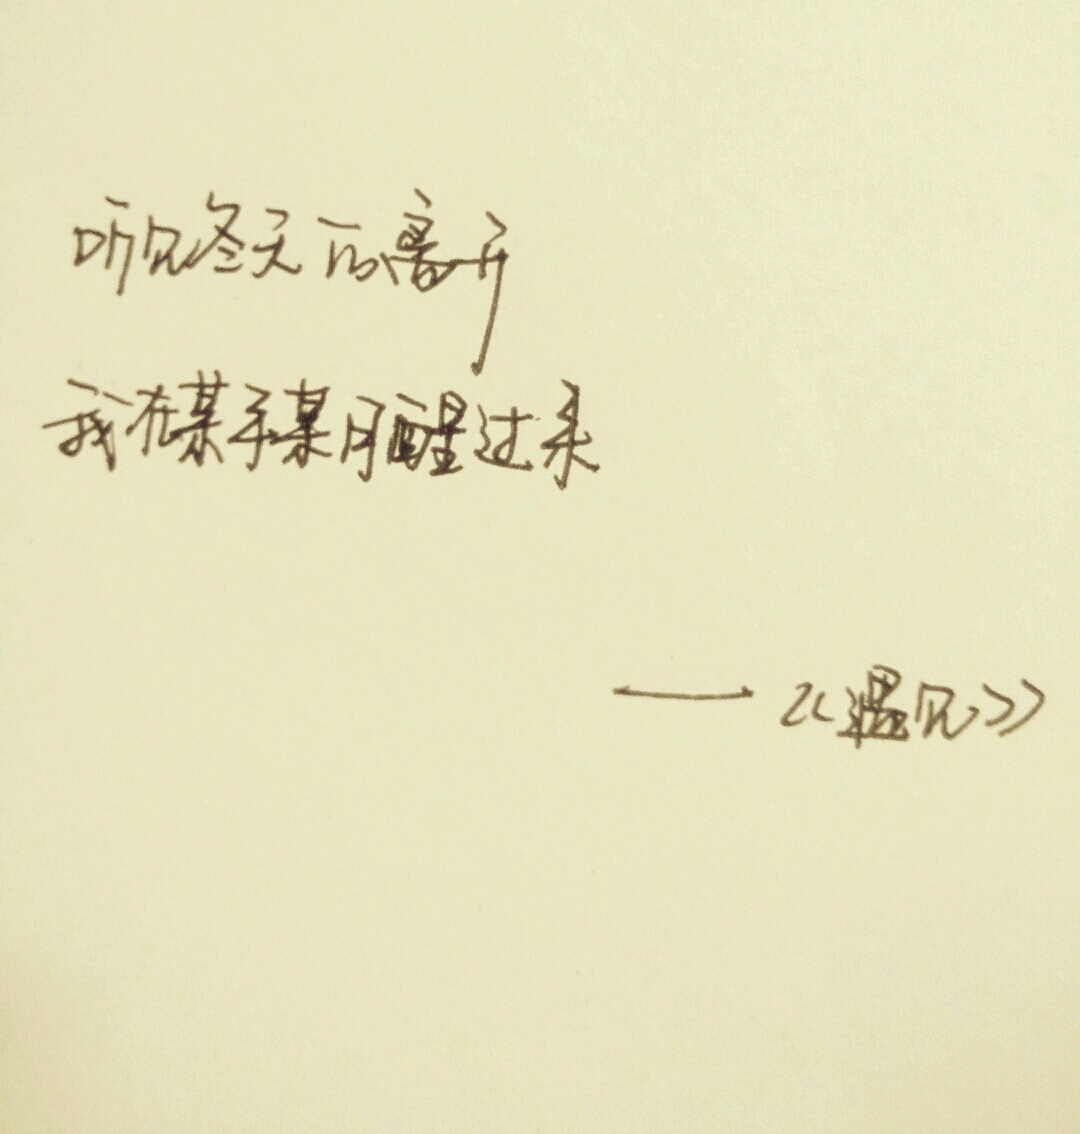 听见冬天的离开
我在某年某月醒过来
——《遇见》